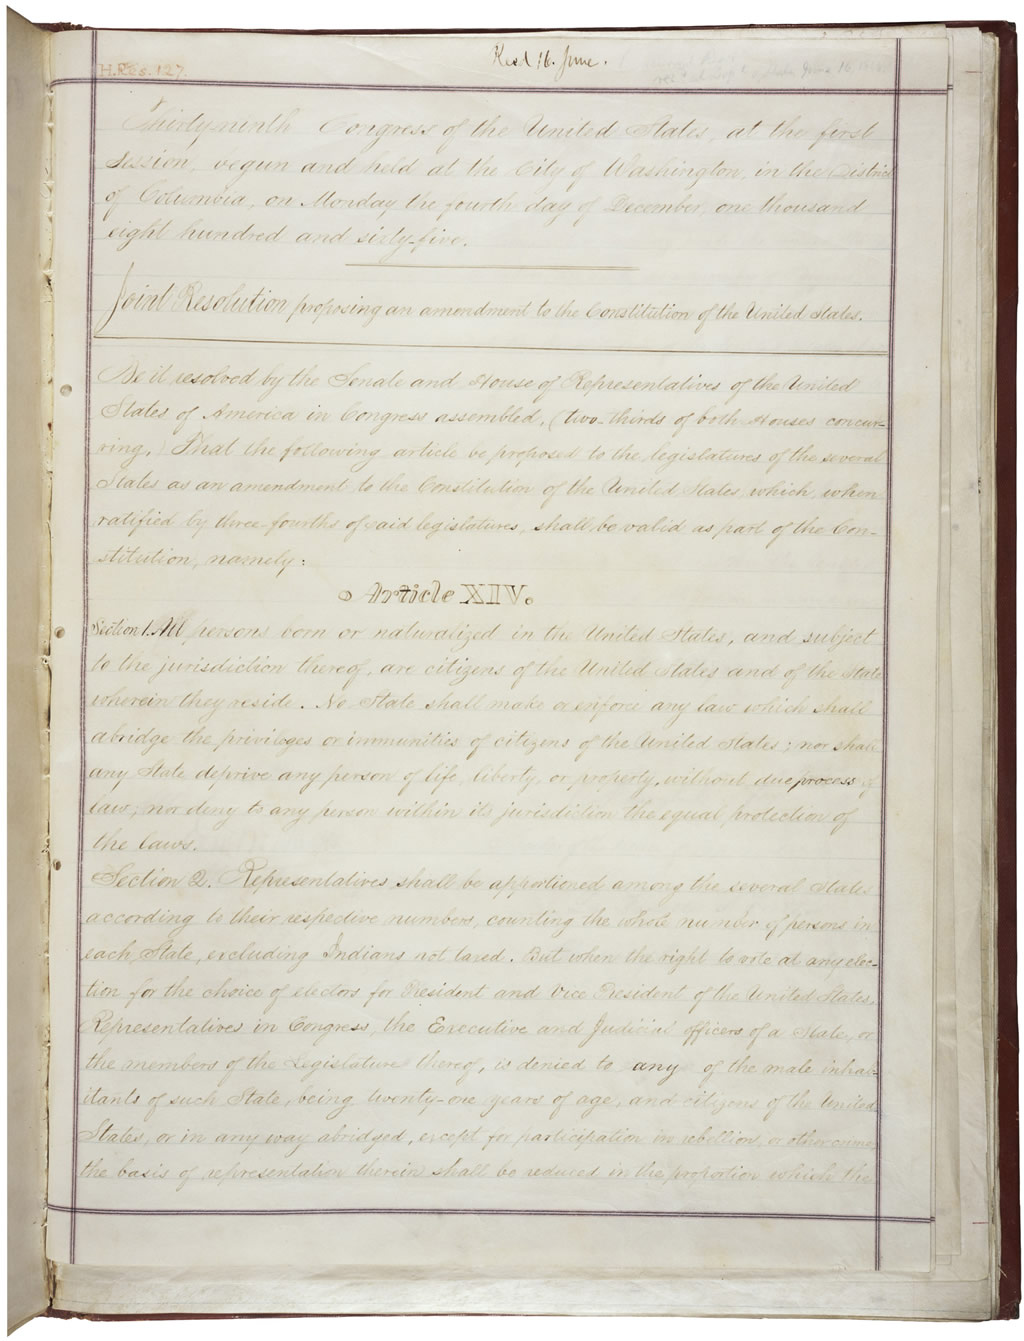 H.Res. 127.
Recd 16. June.
June 16
Thirty-ninth Congress of the United States, at the first
Session, begun and held at the City of Washington, in the District
of Columbia, on Monday the fourth day of December, one thousand
eight hundred and sixty-five.
Joint Resolution proposing an amendment to the Constitution of the United States.
Be it resolved by the Senate and House of Representatives of the United
States of America in Congress assembled, (two-thirds of both Houses concur-
ring,) That the following article be proposed to the legislatures of the several
States as an amendment to the Constitution of the United States, which, when
ratified by three-fourths of said legislatures, shall be valid as part of the Con-
stitution, namely:
Article XIV.
Section 1. All persons born or naturalized in the United States, and subject
to the jurisdiction thereof, are citizens of the United States and of the State
wherein they reside. No State shall make or enforce any law which shall
abridge the privileges or immunities of citizens of the United States; nor shall
any State deprive any person of life, liberty, or property, without due process of
law; nor deny to any person within its jurisdiction the equal protection of
the laws.
Section 2. Representatives shall be apportioned among the several States
according to their respective numbers, counting the whole number of persons in
each State, excluding Indians not taxed. But when the right to vote at any elec-
tion for the choice of electors for President and Vice President of the United States,
Representatives in Congress, the Executive and Judicial officers of a State, or
the members of the Legislature thereof, is denied to any of the male inhab-
itants of such State, being twenty-one years of age, and citizens of the United
States, or in any way abridged, except for participation in rebellion, or other crime,
the basis of representation therein shall be reduced in the proportion which the